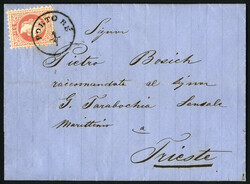 PORTO RÉ
Signor
Pietro Bosich
raccomandata al signor
G. Tarabochia Sensale
Marittimo
a
Trieste